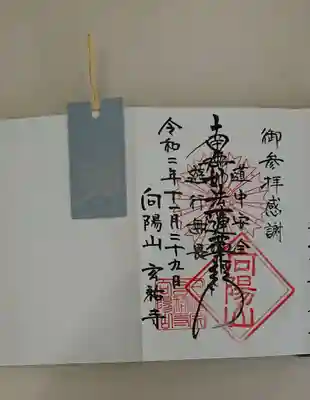 御参拝感謝
道中安全
南無妙法蓮華経
令和二年十一月二十九日
向陽山 玄祐寺
向陽山